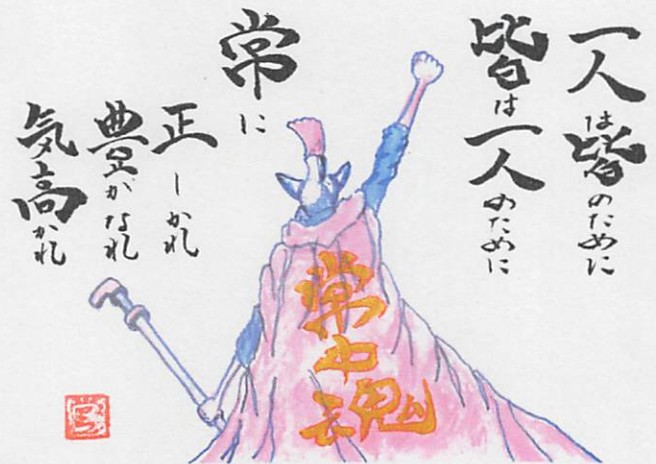 一人は皆のために
皆は一人のために
常に
正しかれ
豊かなれ
気高かれ
常中魂